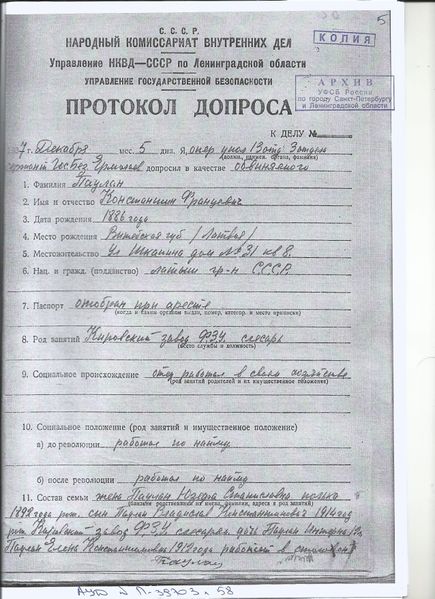 5
КОПИЯ
С. С. С. Р.
НАРОДНЫЙ КОМИССАРИАТ ВНУТРЕННИХ ДЕЛ
Управление НКВД—СССР по Ленинградской области
УПРАВЛЕНИЕ ГОСУДАРСТВЕННОЙ БЕЗОПАСНОСТИ
АРХИВ
УФСБ России
по городу Санкт-Петербургу
и Ленинградской области
ПРОТОКОЛ ДОПРОСА
К ДЕЛУ №
7 г. Декабря мес. 5 дня. Я, опер упол 13 отд. 3 отдела
(должн., наимен. органа, фамилия)
Госбез Ермолаев допросил в качестве обвиняемого
1. Фамилия Паулан
2. Имя и отчество Константин Францевич
3. Дата рождения 1886 года
4. Место рождения Витебская губ /Латвия/
5. Местожительство ул Шкапина дом № 31 кв 8.
6. Нац. и гражд. (подданство) латыш гр-н С.С.С.Р.
7. Паспорт отобран при аресте
(когда и каким органом выдан, номер, категор. и место прописки)
8. Род занятий Кировский завод ФЗУ слесарь
(место службы и должность)
9. Социальное происхождение отец работал в своем хозяйстве
(род занятий родителей и их имущественное положение)
10. Социальное положение (род занятий и имущественное положение)
а) до революции работал по найму
б) после революции работал по найму
11. Состав семьи жена Паулан Станиславовна полька
1892 года рож. сын Паулан Владислав Константинович 1914 год
рож Кировский завод ФЗУ слесарь. дочь Паулан
Паулан Елена Константиновна 1919 года работает в
Паулан
АУД П-38703 л. 58